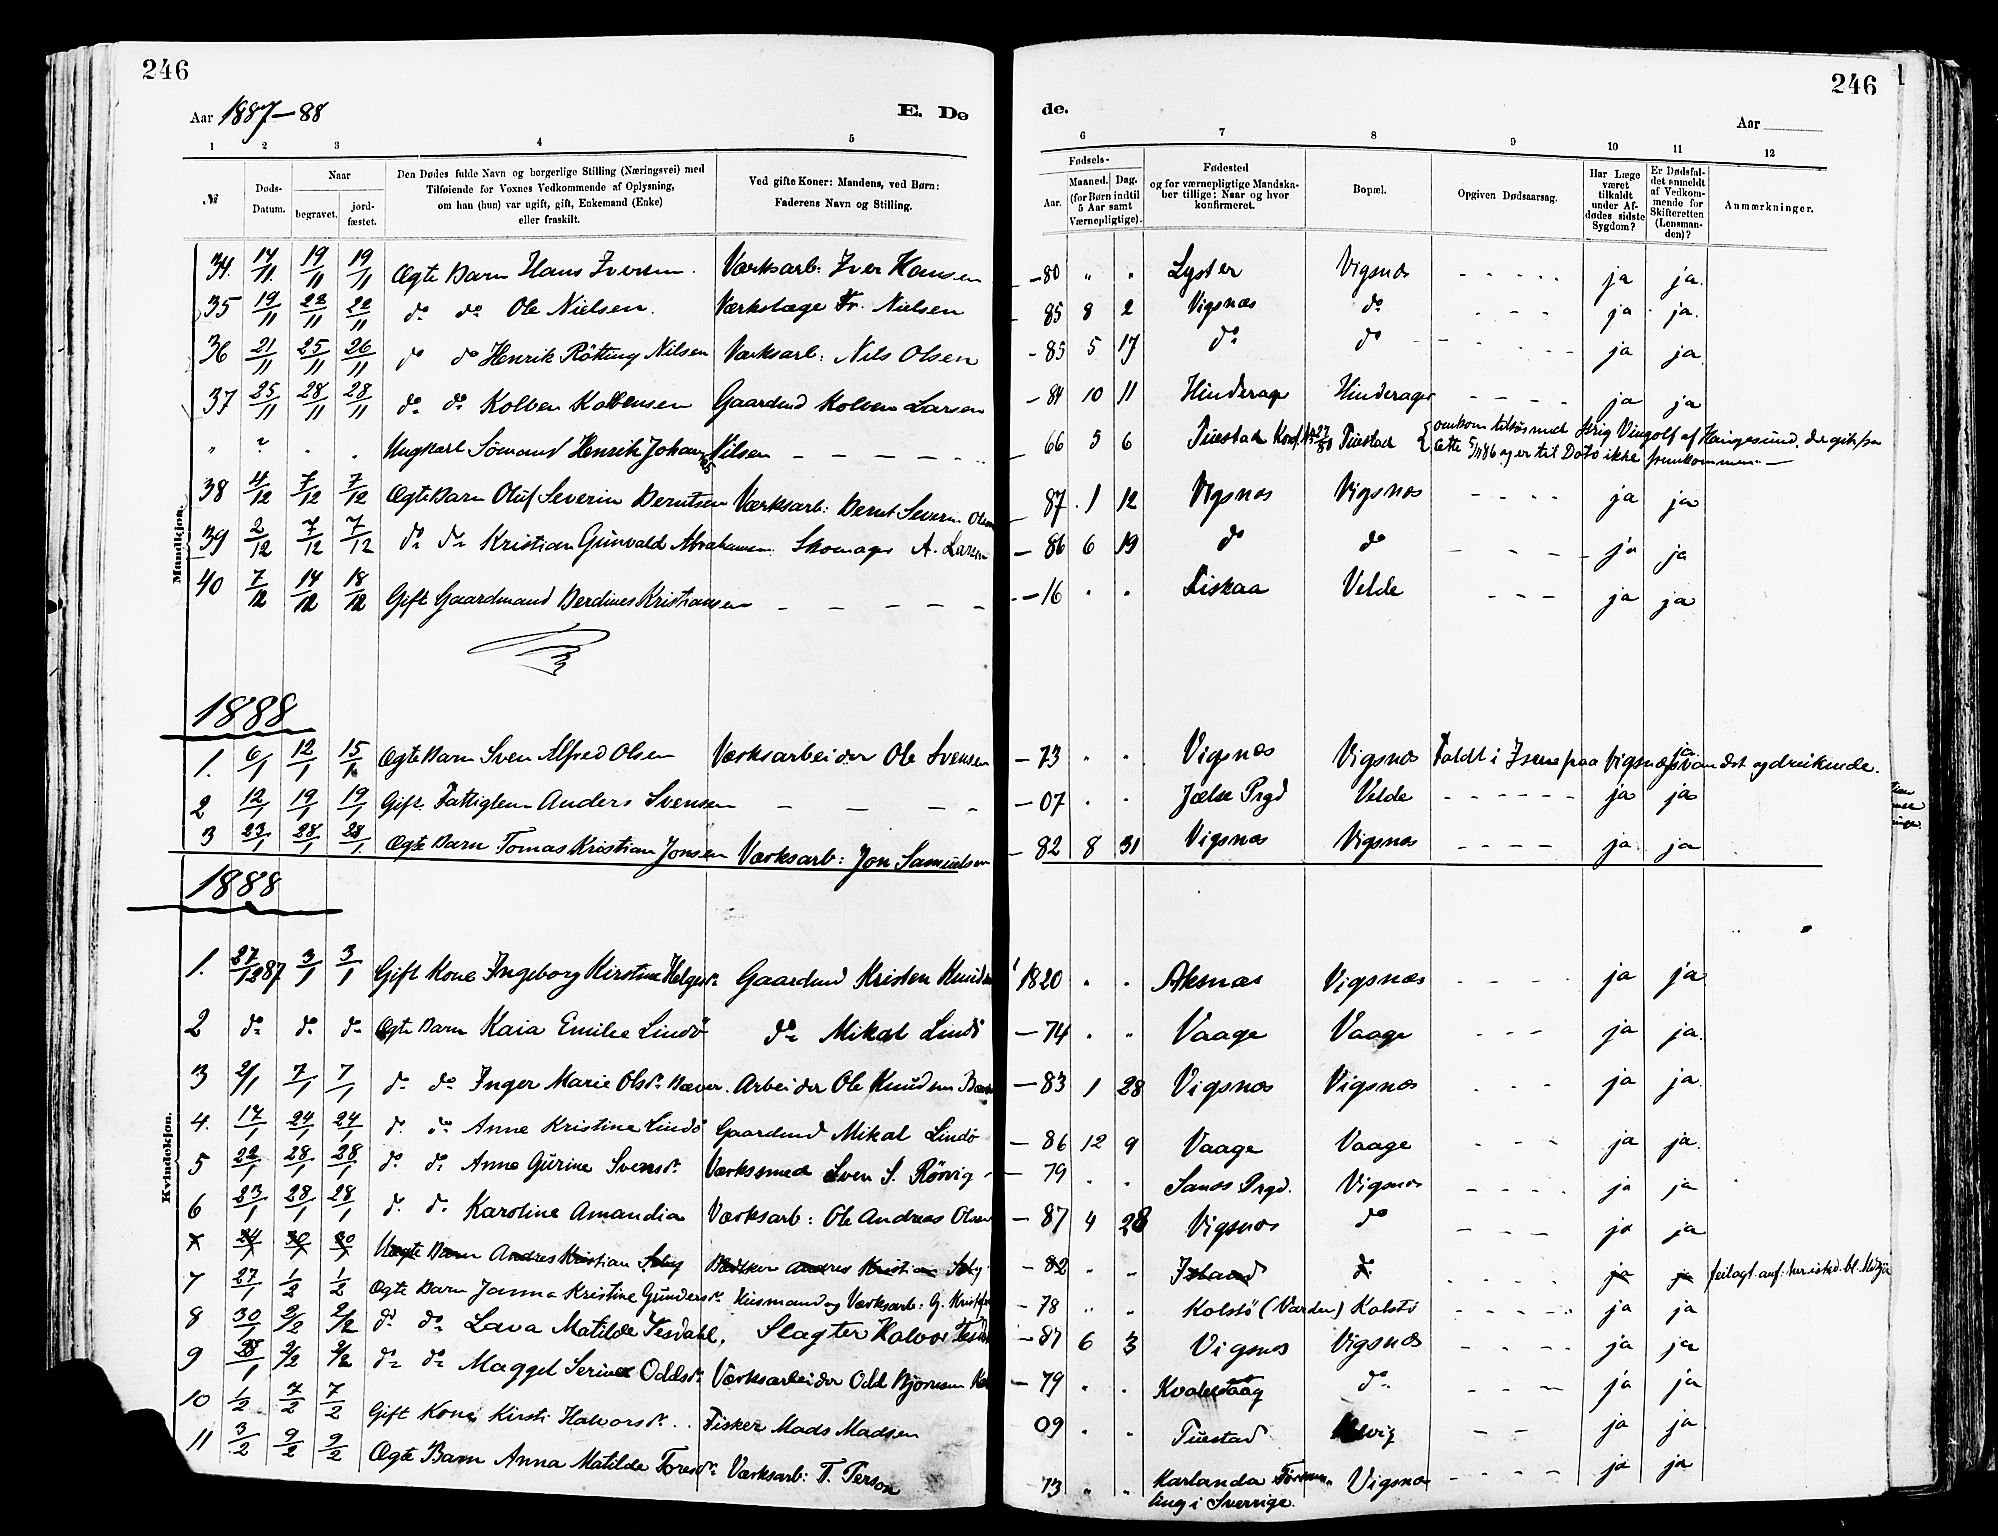 246
246
Aar 1887-88
E. Dø
de.
Aar
1 2 3 4 5 6 7 8 9 10 11 12
№
Døds-Datum.
Naar begravet. jordfæstet.
Den Dødes fulde Navn og borgerlige Stilling (Næringsvei) med Tilføiende for Voxnes Vedkommende af Oplysning, om han (hun) var ugift, gift, Enkemand (Enke) eller fraskilt.
Ved gifte Koner: Mandens, ved Børn: Faderens Navn og Stilling.
Fødsels- Aar. Maaned. Dag. (for Børn indtil 5 Aar samt Værnepligtige).
Fødested og for værnepligtige Mandskaber tillige: Naar og hvor konfirmeret.
Bopæl.
Opgiven Dødsaarsag.
Har Læge været tilkaldt under Afdødes sidste Sygdom?
Er Dødsfaldet anmeldt af Vedkommende for Skifteretten (Lensmanden)?
Anmærkninger.
Mandkjøn.
34. 14/11. 19/11 19/11 Ægte Barn Hans Iversen. Værksarb: Iver Hansen -80 " " Lyster Vigsnæs - - - - - ja ja.
35 19/11 22/11 22/11 do do Ole Nielsen. Værkslæge Fr. Nielsen 85 8 2 Vigsnæs do - - - ja ja.
36 21/11 25/11 26/11 do do Henrik Rötting Nilsen Værksarb: Nils Olsen -85 5 17 do do - - - - - - ja ja
37 25/11 28/11 28/11 do do Kolben Kolbensen Gaardmd Kolben Larsen -84 10 11 Hinderager Hinderager - - - - ja ja
" ? . . Ungkarl Sömand Henrik Johan Nilsen - - - - - 66 5 6 Tuestad Konf. Tuestad omkom tilsös med Brig Vingolf af Haugesund, der gik fra
Cette og er til Dato ikke fremkommen. -
38 4/12 7/12 7/12 Ægte Barn Oluf Severin Berntsen Værksarb: Bernt Severin Olsen - 87. 1 12 Vigsnæs Vigsnæs - - - - ja ja
39 2/12 7/12 7/12 do do Kristian Gunvald Abrahamsen Skomager A. Larsen - 86 6 19 do do - - - - ja ja
40 7/12 14/12 18/12 Gift Gaardmand Berdines Kristiansen - - - - - -16 . . Fiskaa Velde - - - ja ja
1888
1. 6/1 12/1 15/1 Ægte Barn Sven Alfred Olsen Værksarbeider Ole Svensen -73 . . Vigsnæs Vigsnæs Faldt i Isen paa Vigsnæsvandet og druknede. ja
2 12/1 19/1 19/1 Gift Fattiglem Anders Svensen - - - - -07 . . Jælse Prgd Velde - - - - - - ja ja
3 23/1 28/1 28/1. Ægte Barn Tomas Kristian Jonsen Værksarb: Jon Samuelsen - 82 8 31 Vigsnæs Vigsnæs - - - - ja ja
1888
Kvindekjøn.
1. 27/12 87 3/1 3/1 Gift Kone Ingeborg Kirstine Helgesdr. Gaardmd Kristen Knudsen 1820 " " Aksnæs Vigsnæs - - - - ja ja
2 do do do Ægte Barn Kaia Emilie Lindö do Mikal Lindö -74 . " Vaage Vaage - - - ja ja.
3 2/1 7/1 7/1 do do Inger Marie Olsdr. Bæver. Arbeider Ole Knudsen Bæver -83 1 28 Vigsnæs Vigsnæs - - - - ja ja.
4. 17/1 24/1 24/1 do do Anne Kristine Lindö Gaardmd Mikal Lindö - 86 12 9 Vaage Vaage - - - ja ja.
5 22/1 28/1 28/1 do do Anne Gurine Svensdr. Værkssmed Sven S. Rörvig - 79 . . Sands Prgd. Vigsnæs - - - - ja ja
6 23/1 28/1 28/1 do do Karoline Amandia Værksarb: Ole Andreas Olsen - 87 4 28 Vigsnæs do - - - ja ja
24/1 30/1 30/1 Uægte Barn Andres Kristian Bödker Andres Kristian -82 " " Island do - - - - ja ja
7 27/1 1/2 1/2 Ægte Barn Janna Kristine Gundersdr. Husmand og Værksarb: G. -78 " " Kolstö (Varden) Kolstö - - - - - ja ja
8 30/1 2/2 2/2 do do Lava Matilde Tesdahl. Slagter Halvor -87 6 3 Vigsnæs Vigsnæs - - - - ja ja
9 28/1 2/2 2/2 do do Maggel Serine Oddsdr. Værksarbeider Odd Bjørnsen - 79 " . do. - - - ja ja
10 1/2 7/2 7/2 Gift Kone Kirsti Halvorsdr. Fisker Mads Madsen 09 " . Tuestad - - ja ja
11 3/2 9/2 9/2 Ægte Barn Anna Matilde Toresdr. Værksarb: T. Terson 73 " " Karlanda
i Sverrige. Vigsnæs - - - - ja ja